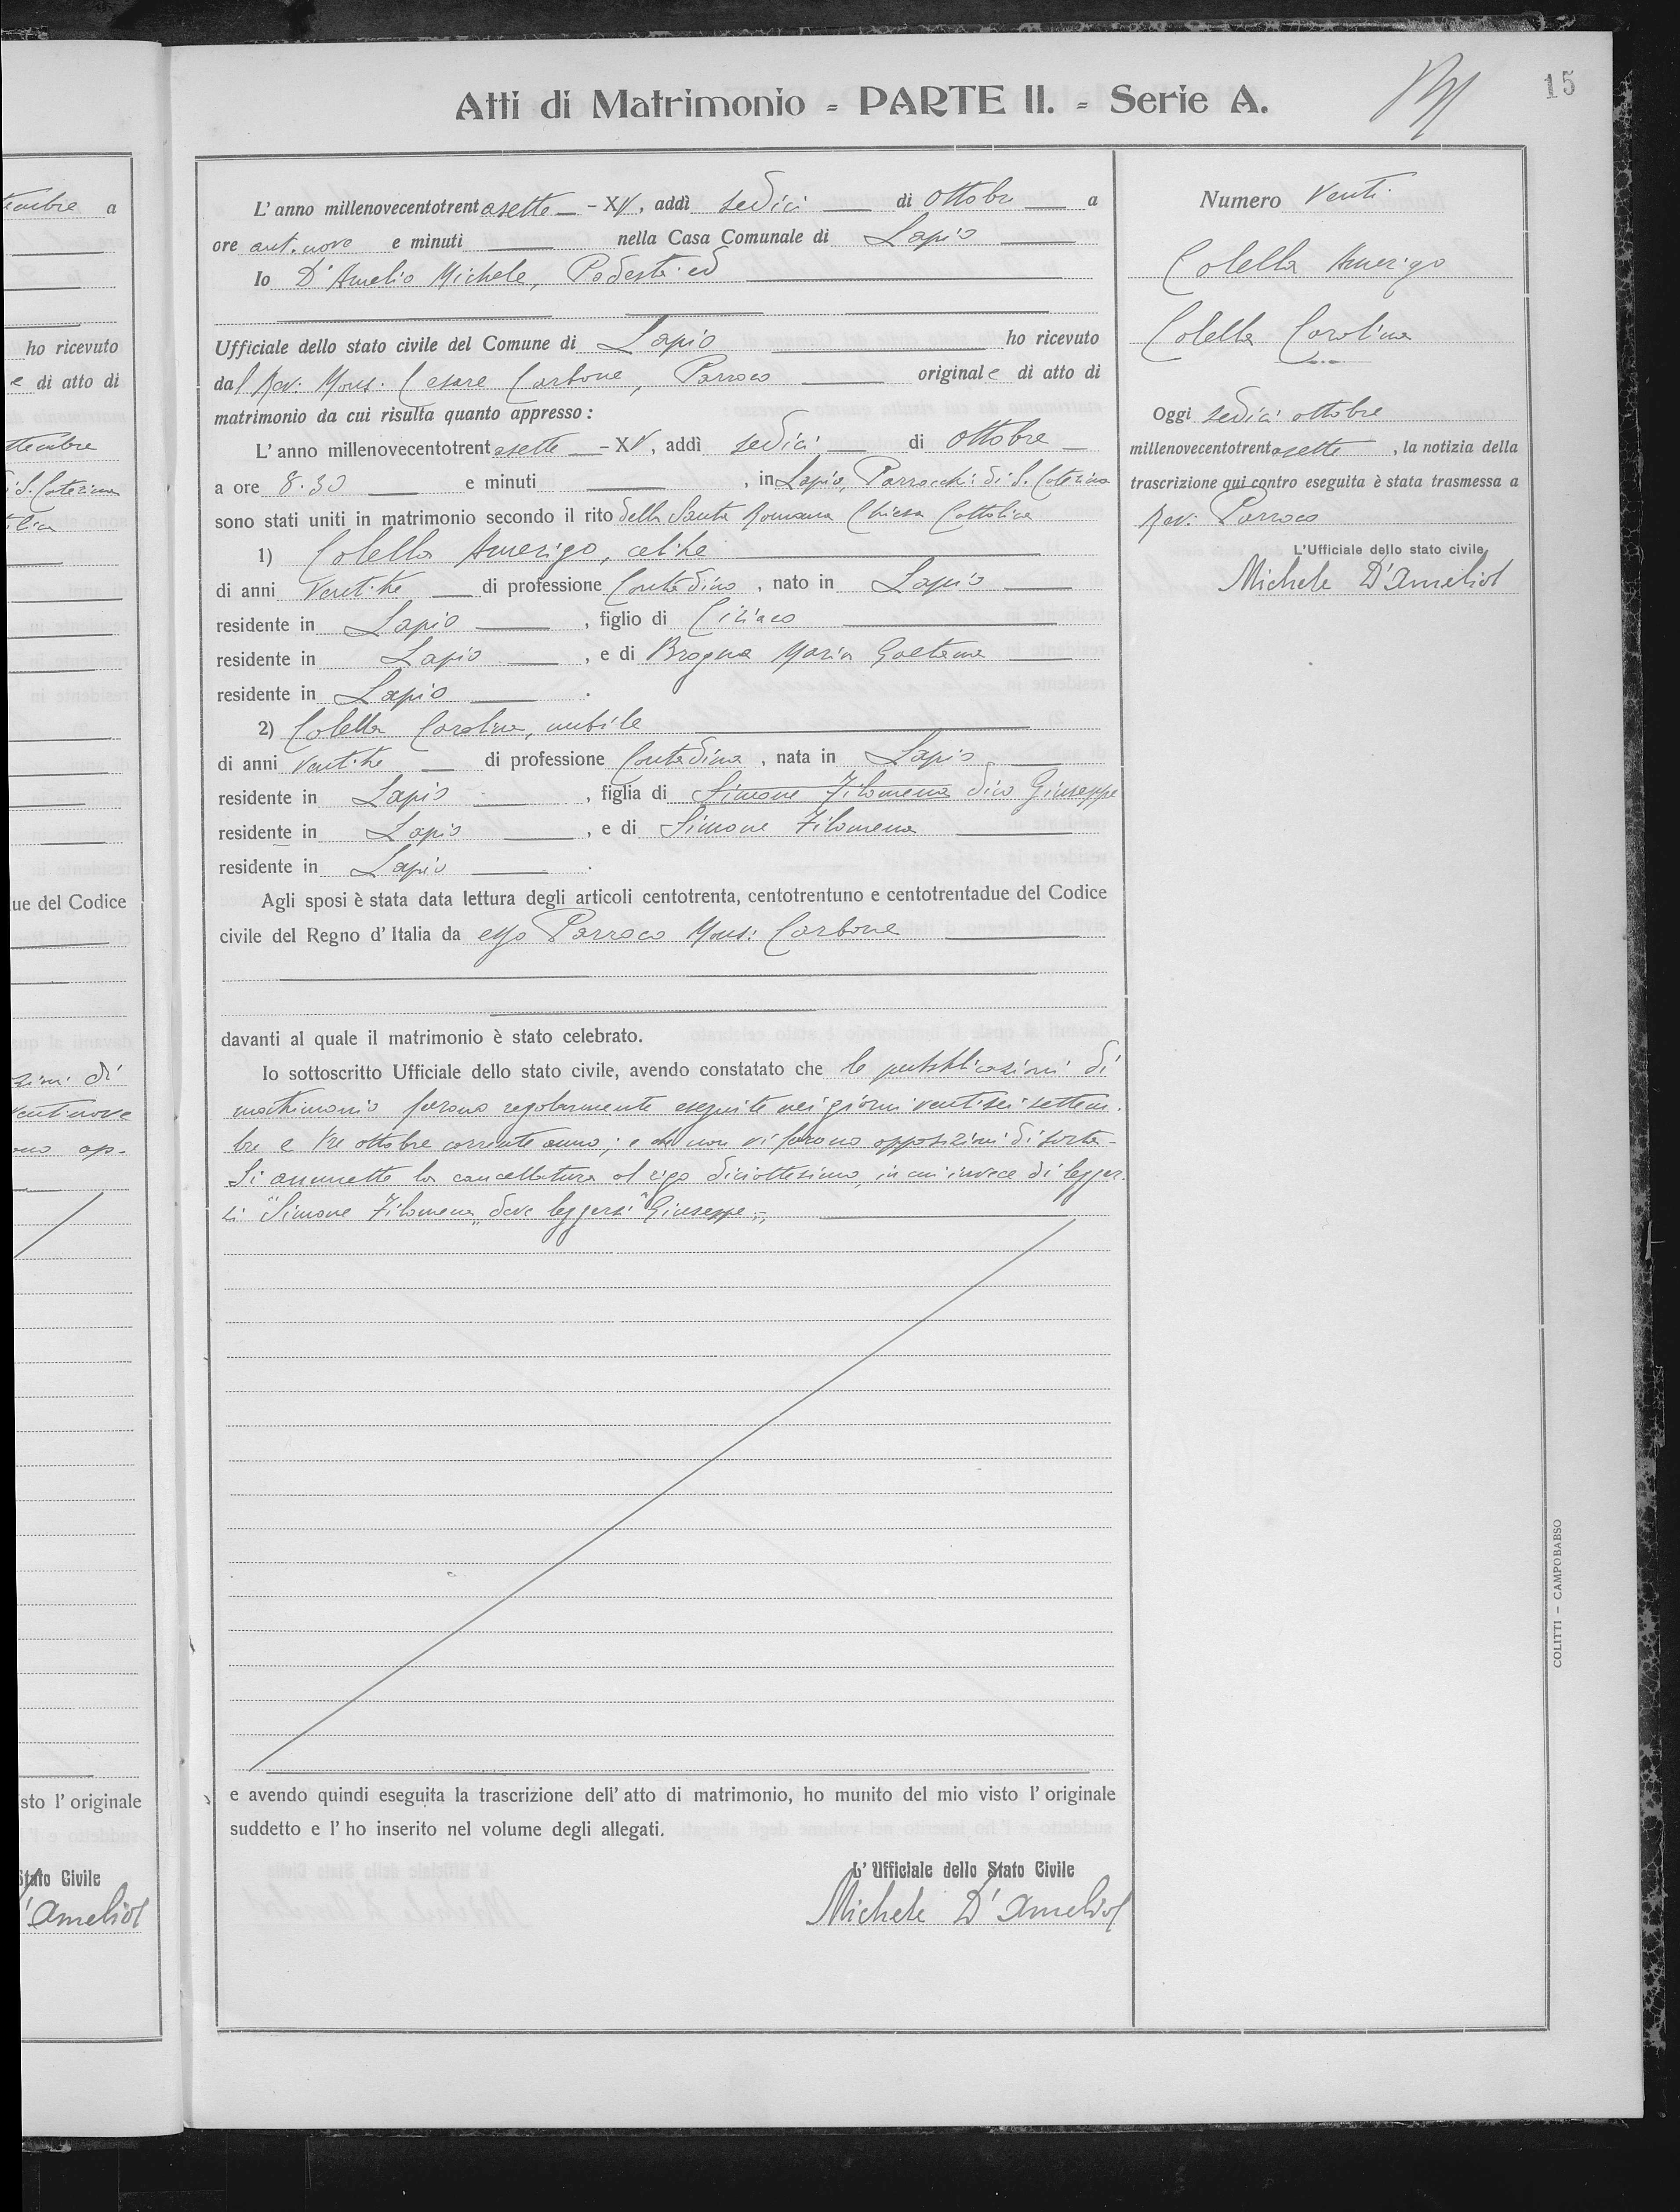 15
Atti di Matrimonio - PARTE II. - Serie A.
L'anno millenovecentotrentasette - XV, addì sedici di ottobre a
ore ant. nove e minuti nella Casa Comunale di Lapio
Io D'Amelio Michele, Podestà ed
Ufficiale dello stato civile del Comune di Lapio ho ricevuto
dal Rev. Mons. Cesare Carbone, Parroco originale di atto di
matrimonio da cui risulta quanto appresso:
L'anno millenovecentotrentasette - XV, addì sedici di ottobre
a ore 8.30 e minuti , in Lapio, Parrocchi: di S. Caterina
sono stati uniti in matrimonio secondo il rito della Santa Romana Chiesa Cattolica
1) Colella Amerigo, celibe
di anni ventitre di professione Contadino, nato in Lapio
residente in Lapio , figlio di Ciriaco
residente in Lapio , e di Brogna Maria Gaetana
residente in Lapio .
2) Colella Carolina, nubile
di anni ventitre di professione Contadina, nata in Lapio
residente in Lapio , figlia di Simone Filomena dico Giuseppe
residente in Lapio , e di Simone Filomena
residente in Lapio .
Agli sposi è stata data lettura degli articoli centotrenta, centotrentuno e centotrentadue del Codice
civile del Regno d'Italia da esso Parroco Mons: Carbone
davanti al quale il matrimonio è stato celebrato.
Io sottoscritto Ufficiale dello stato civile, avendo constatato che le pubblicazioni di
matrimonio furono regolarmente eseguite nei giorni ventisei settem-
bre e tre ottobre corrente anno; e che non vi furono opposizioni di sorta -
Si ammette la cancellatura al rigo diciottesimo, in cui invece di legger-
si "Simone Filomena" deve leggersi "Giuseppe"
e avendo quindi eseguita la trascrizione dell'atto di matrimonio, ho munito del mio visto l'originale
suddetto e l'ho inserito nel volume degli allegati.
L'Ufficiale dello Stato Civile
Michele D'Amelio
Numero Venti
Colella Amerigo
Colella Carolina
Oggi sedici ottobre
millenovecentotrentasette , la notizia della
trascrizione qui contro eseguita è stata trasmessa a
Rev. Parroco
L'Ufficiale dello stato civile
Michele D'Amelio
COLITTI - CAMPOBABSO
tembre a
ho ricevuto
e di atto di
ttembre
di S. Caterina
ue del Codice
zioni di
ventinove
ono op-
sto l'originale
Stato Civile
D'Amelio